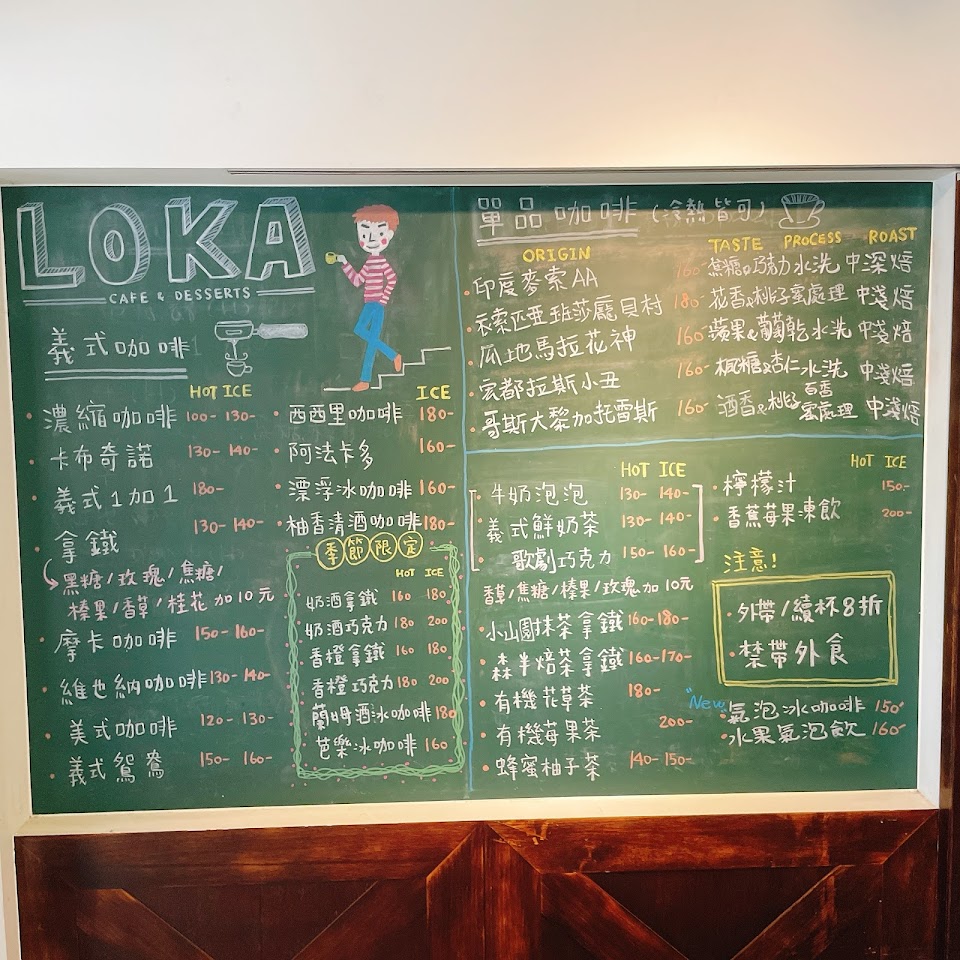 LOKA
CAFE & DESSERTS
義式咖啡
HOT ICE
濃縮咖啡 100- 130-
卡布奇諾 130- 140-
義式1加1 180-
拿鐵 130- 140-
黑糖/玫瑰/焦糖/
榛果/香草/桂花加10元
摩卡咖啡 150- 160-
維也納咖啡 130- 140-
美式咖啡 120- 130-
義式鴛鴦 150- 160-
ICE
西西里咖啡 180-
阿法卡多 160-
漂浮冰咖啡 160-
柚香清酒咖啡 180-
季節限定
HOT ICE
奶酒拿鐵 160 180
奶酒巧克力 180 200
香橙拿鐵 160 180
香橙巧克力 180 200
蘭姆酒冰咖啡 180
芭樂冰咖啡 160
單品咖啡(冷熱皆可)
ORIGIN TASTE PROCESS ROAST
印度麥索AA 160- 焦糖&巧克力 水洗 中深焙
衣索匹亞班莎廳貝村 180- 花香&桃子 蜜處理 中淺焙
瓜地馬拉花神 160- 蘋果&葡萄乾 水洗 中淺焙
宏都拉斯小丑 160- 楓糖&杏仁 水洗 中淺焙
哥斯大黎加托雷斯 160- 酒香&桃子 百香蜜處理 中淺焙
HOT ICE
牛奶泡泡 130- 140-
義式鮮奶茶 130- 140-
歌劇巧克力 150- 160-
香草/焦糖/榛果/玫瑰加10元
小山園抹茶拿鐵 160- 180-
森半焙茶拿鐵 160- 170-
有機花草茶 180-
有機莓果茶 200-
蜂蜜柚子茶 140- 150-
HOT ICE
檸檬汁 150-
香蕉莓果凍飲 200-
注意!
外帶/續杯8折
禁帶外食
"New"
氣泡冰咖啡 150-
水果氣泡飲 160-